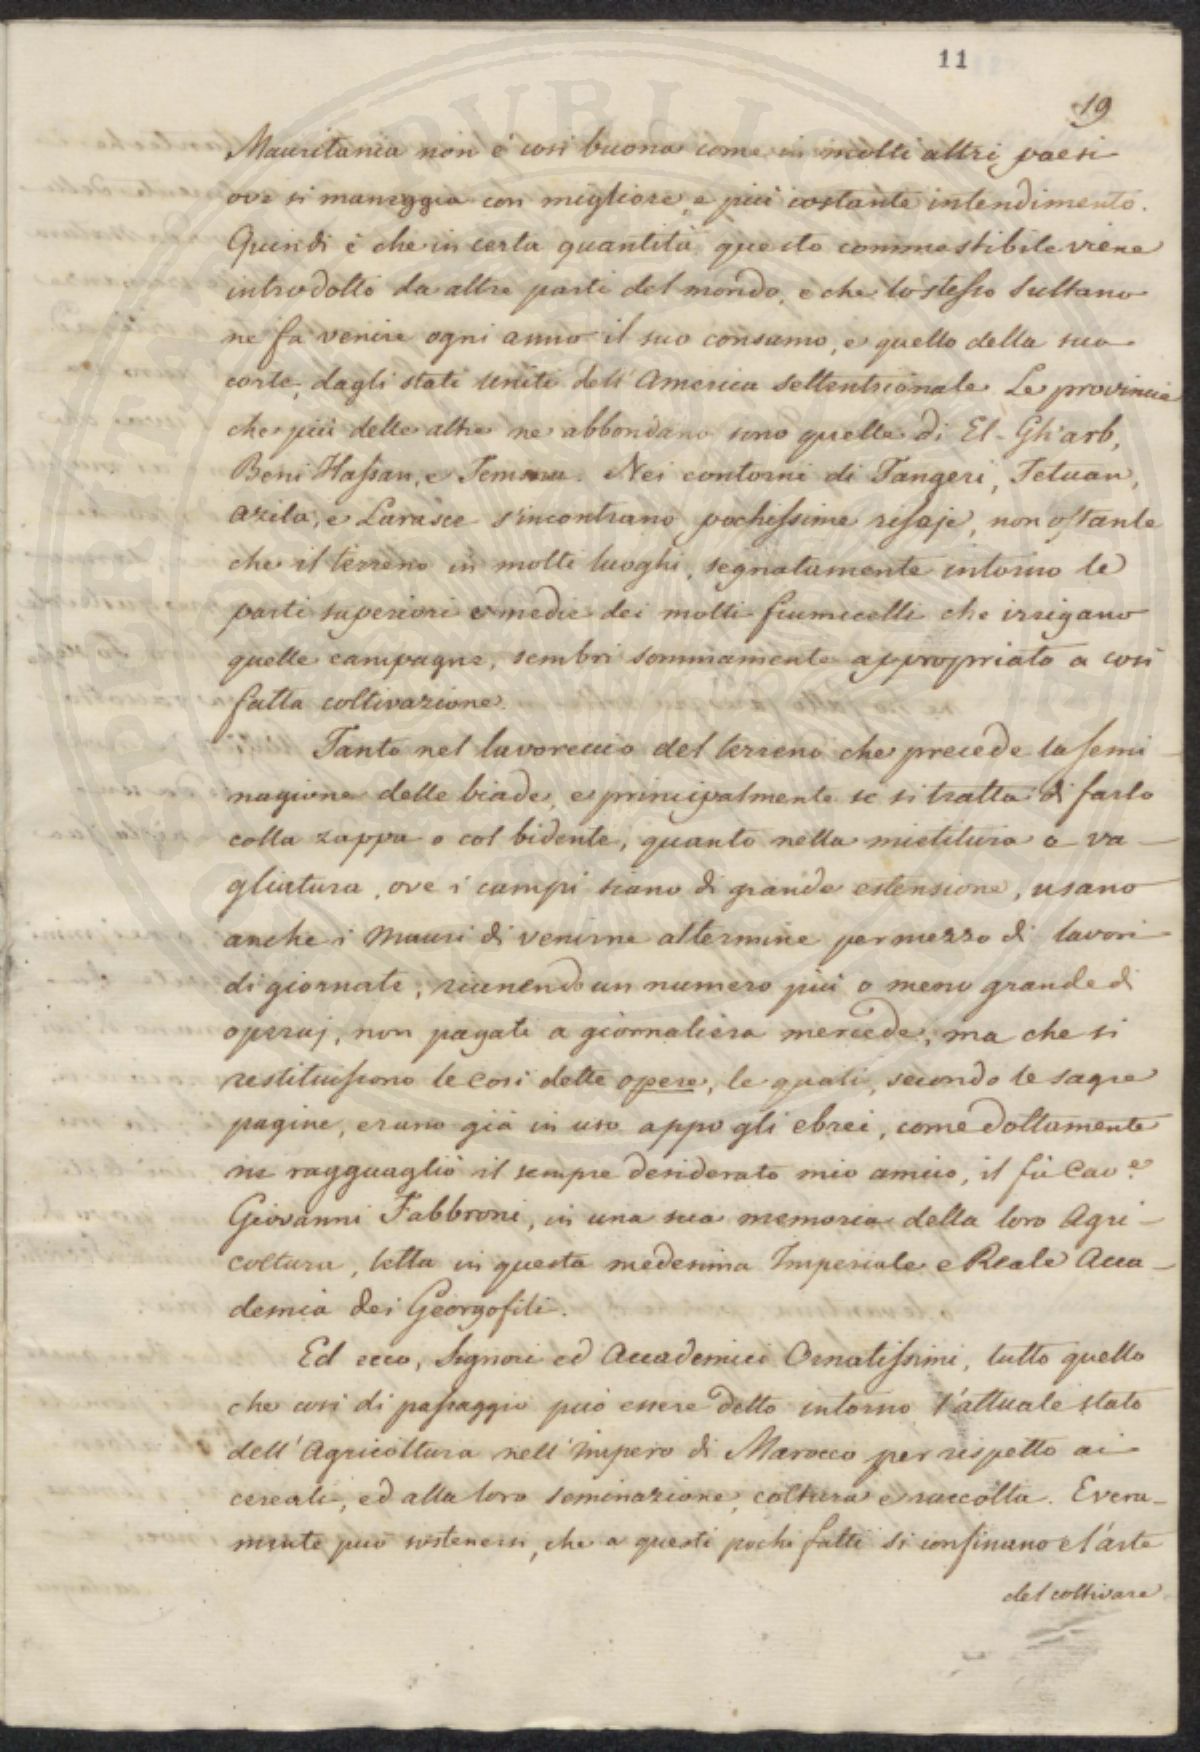 11
19
Mauritania non è così buona come in molti altri paesi
ove si maneggia con migliore, e più costante intendimento.
Quindi è che in certa quantità questo commestibile viene
introdotto da altre parti del mondo, e che lo stesso Sultano
ne fà venire ogni anno il suo consumo, e quello della sua
corte, dagli stati uniti dell'America settentrionale. Le provincie
che più delle altre ne abbondano sono quelle di El-Gharb,
Beni Hassan, e Temsna. Nei contorni di Tangeri, Tetuan,
Arzila, e Larasce s'incontrano pochissime risaje, non ostante
che il terreno in molti luoghi, segnatamente intorno le
parti superiori e medie dei molti fiumicelli che irrigano
quelle campagne, sembri sommamente appropriato a così
fatta coltivazione.
Tanto nel lavoreccio del terreno che precede la semi
nagione delle biade, e principalmente se si tratta di farlo
colla zappa o col bidente, quanto nella mietitura o va-
gliatura, ove i campi siano di grande estensione, usano
anche i Mauri di venirne al termine per mezzo di lavori
di giornate, riunendo un numero più o meno grande di
operaj, non pagati a giornaliera mercede, ma che si
restituissono le così dette opere, le quali, secondo le sagre
pagine, erano già in uso appo gli ebrei, come dottamente
ne ragguagliò il sempre desiderato mio amico, il fù Cav.e
Giovanni Fabbroni, in una sua memoria della loro Agri-
coltura, letta in questa medesima Imperiale e Reale Acca-
demia dei Georgofili.
Ed ecco, Signori ed Accademici Ornatissimi, tutto quello
che così di passaggio può essere detto intorno l'attuale stato
dell'Agricoltura nell'Impero di Marocco per rispetto ai
cereali, ed alla loro seminazione, coltura e raccolta. E vera-
mente può sostenersi, che a questi pochi fatti si confinano e l'arte
del coltivare